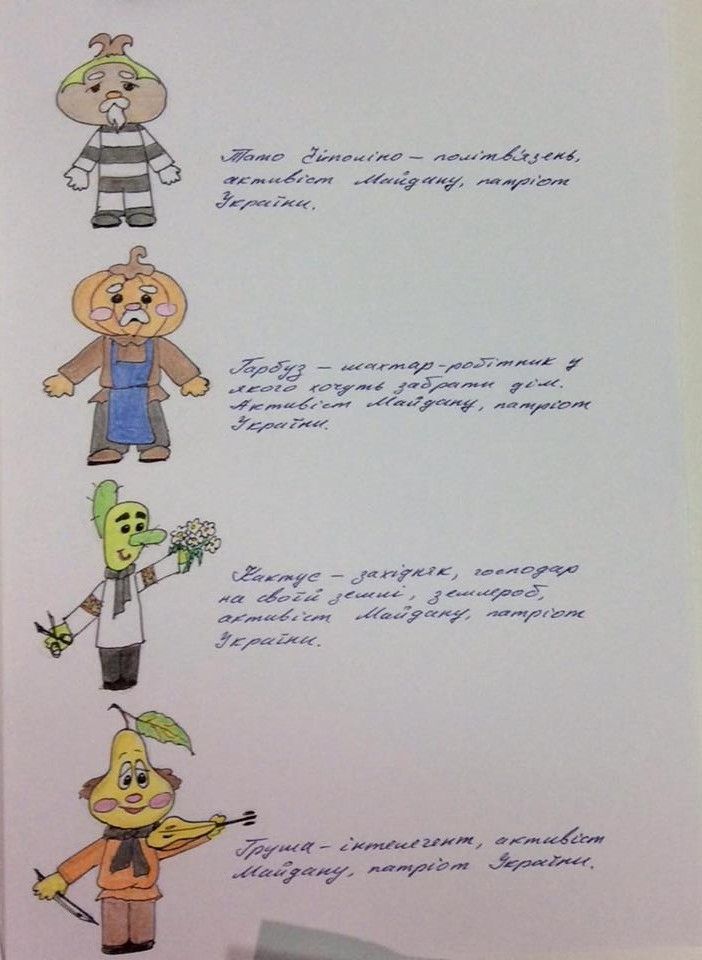 Тато Чіполіно – політв'язень,
активіст Майдану, патріот
України.
Гарбуз – шахтар-робітник у
якого хочуть забрати дім.
Активіст Майдану, патріот
України.
Кактус – західняк, господар
на своїй землі, землероб,
активіст Майдану, патріот
України.
Груша – інтелегент, активіст
Майдану, патріот України.